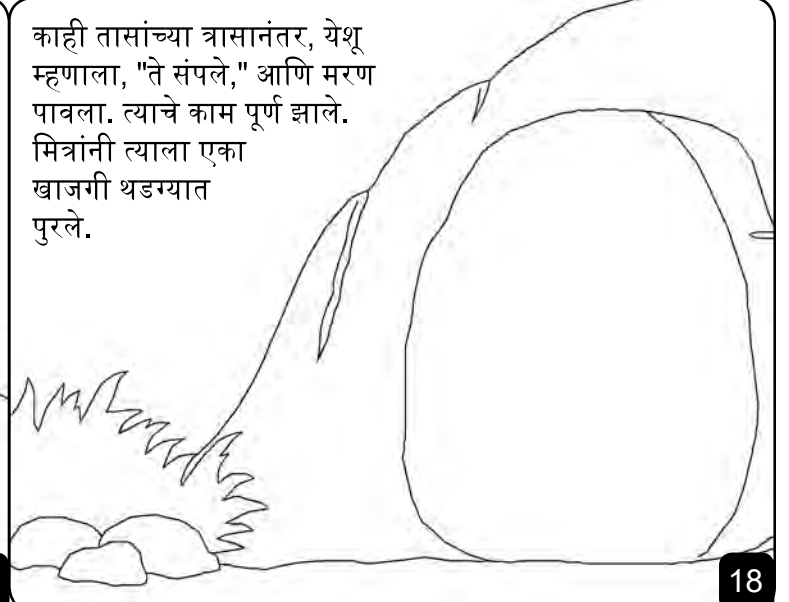 काही तासांच्या त्रासानंतर, येशू
म्हणाला, "ते संपले," आणि मरण
पावला. त्याचे काम पूर्ण झाले.
मित्रांनी त्याला एका
खाजगी थडग्यात
पुरले.
18